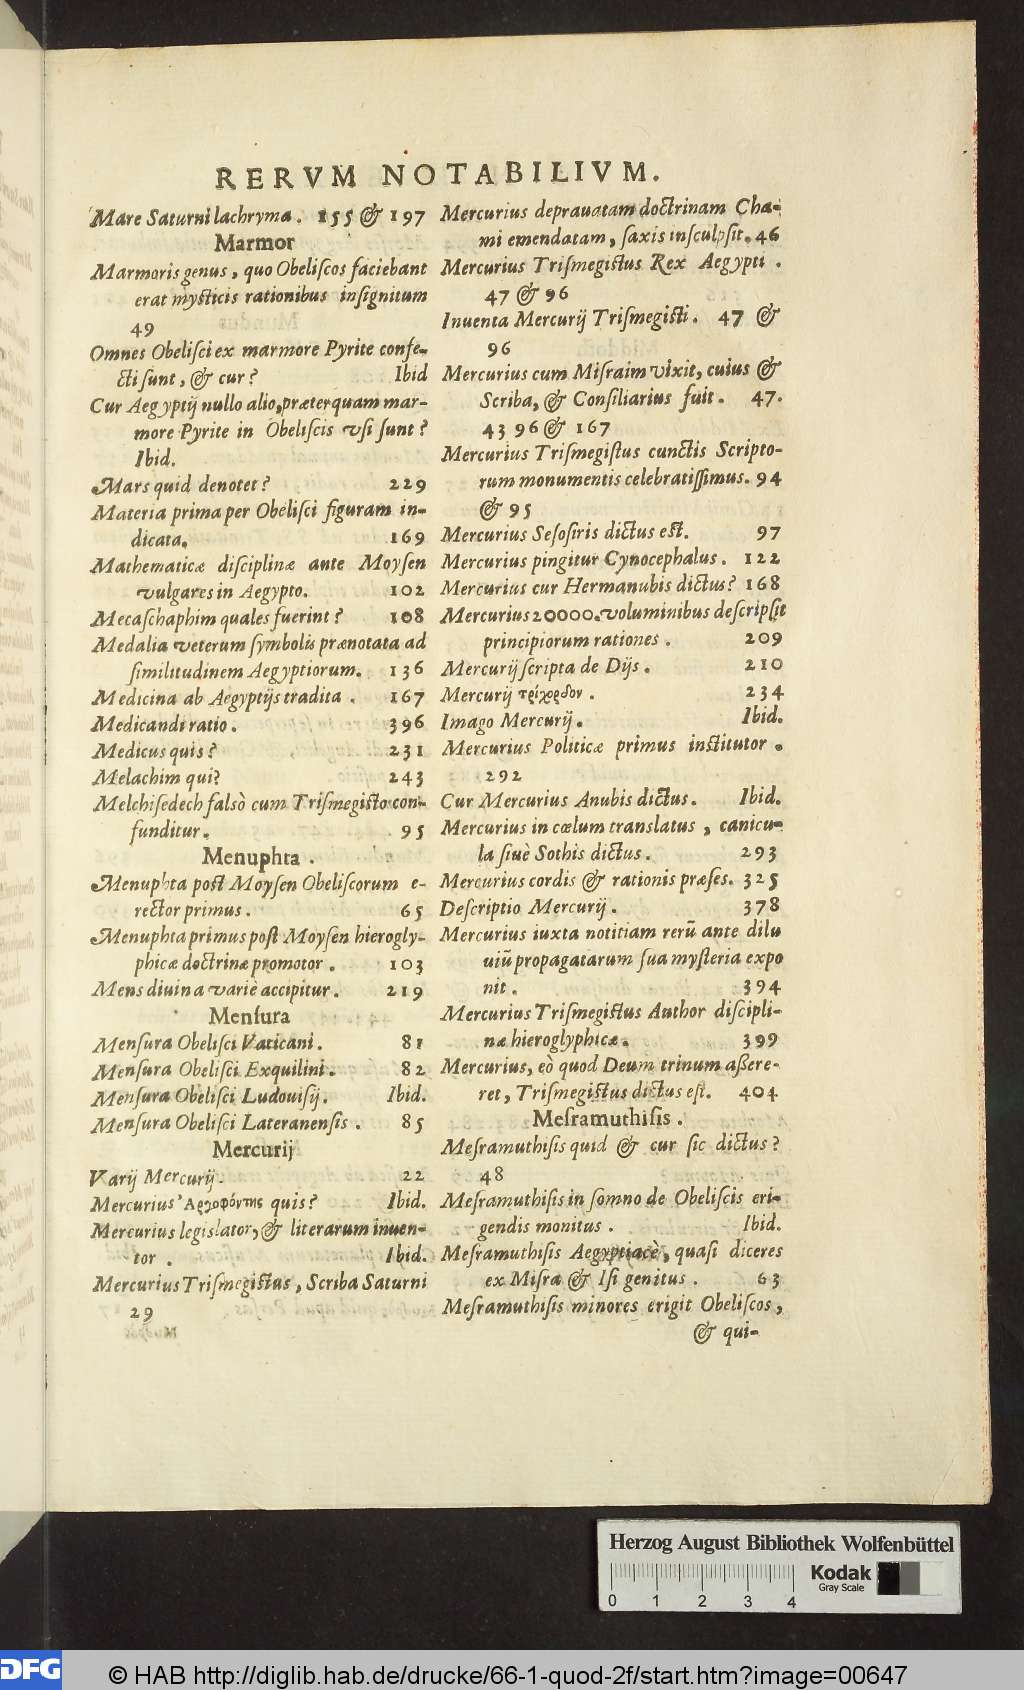 RERVM NOTABILIVM.
Mare Saturni lachryma. 155 & 197
Marmor
Marmoris genus, quo Obeliſcos faciebant
erat myſticis rationibus inſignitum
49
Omnes Obeliſci ex marmore Pyrite confe-
cti ſunt, & cur? Ibid
Cur Aegyptij nullo alio, præterquam mar-
more Pyrite in Obeliſcis vſi ſunt?
Ibid.
Mars quid denotet? 229
Materia prima per Obeliſci figuram in-
dicata. 169
Mathematicæ diſciplinæ ante Moyſen
vulgares in Aegypto. 102
Mecaſchaphim quales fuerint? 108
Medalia veterum ſymbolis prænotata ad
ſimilitudinem Aegyptiorum. 136
Medicina ab Aegyptijs tradita. 167
Medicandi ratio. 396
Medicus quis? 231
Melachim qui? 243
Melchiſedech falsò cum Triſmegiſto con-
funditur. 95
Menuphta.
Menuphta poſt Moyſen Obeliſcorum e-
rector primus. 65
Menuphta primus poſt Moyſen hierogly-
phicæ doctrinæ promotor. 103
Mens diuina variè accipitur. 219
Menſura
Menſura Obeliſci Vaticani. 81
Menſura Obeliſci Exquilini. 82
Menſura Obeliſci Ludouiſij. Ibid.
Menſura Obeliſci Lateranenſis. 85
Mercurij
Varij Mercurij. 22
Mercurius Ἀργοφόντης quis? Ibid.
Mercurius legislator, & literarum inuen-
tor. Ibid.
Mercurius Triſmegiſtus, Scriba Saturni
29
Mercurius deprauatam doctrinam Cha-
mi emendatam, ſaxis inſculpſit. 46
Mercurius Triſmegiſtus Rex Aegypti.
47 & 96
Inuenta Mercurij Triſmegiſti. 47 &
96
Mercurius cum Miſraim vixit, cuius &
Scriba, & Conſiliarius fuit. 47.
43 96 & 167
Mercurius Triſmegiſtus cunctis Scripto-
rum monumentis celebratiſſimus. 94
& 95
Mercurius Seſoſiris dictus eſt. 97
Mercurius pingitur Cynocephalus. 122
Mercurius cur Hermanubis dictus? 168
Mercurius 20000. voluminibus deſcripſit
principiorum rationes. 209
Mercurij ſcripta de Dijs. 210
Mercurij τρίχορδον. 234
Imago Mercurij. Ibid.
Mercurius Politicæ primus inſtitutor.
292
Cur Mercurius Anubis dictus. Ibid.
Mercurius in cœlum translatus, canicu-
la ſiuè Sothis dictus. 293
Mercurius cordis & rationis præſes. 325
Deſcriptio Mercurij. 378
Mercurius iuxta notitiam rerũ ante dilu
uiũ propagatarum ſua myſteria expo
nit. 394
Mercurius Triſmegiſtus Author diſcipli-
næ hieroglyphicæ. 399
Mercurius, eò quod Deum trinum aßere-
ret, Triſmegiſtus dictus eſt. 404
Meſramuthiſis.
Meſramuthiſis quid & cur ſic dictus?
48
Meſramuthiſis in ſomno de Obeliſcis eri-
gendis monitus. Ibid.
Meſramuthiſis Aegyptiacè, quaſi diceres
ex Miſra & Iſi genitus. 63
Meſramuthiſis minores erigit Obeliſcos,
& qui-
Herzog August Bibliothek Wolfenbüttel
Kodak
Gray Scale
0 1 2 3 4
DFG
© HAB http://diglib.hab.de/drucke/66-1-quod-2f/start.htm?image=00647